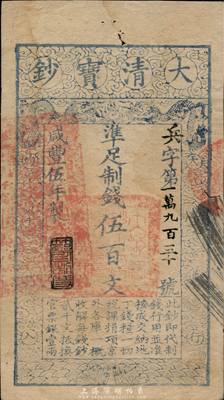 大清寶鈔
兵字第一萬九百三十號
準足制錢伍百文
咸豐伍年製
此鈔即代制
錢行用並准
按成交納地
丁錢糧一切
稅課捐項京
外各庫一概
收解每錢鈔
貳千文抵換
官票銀壹兩